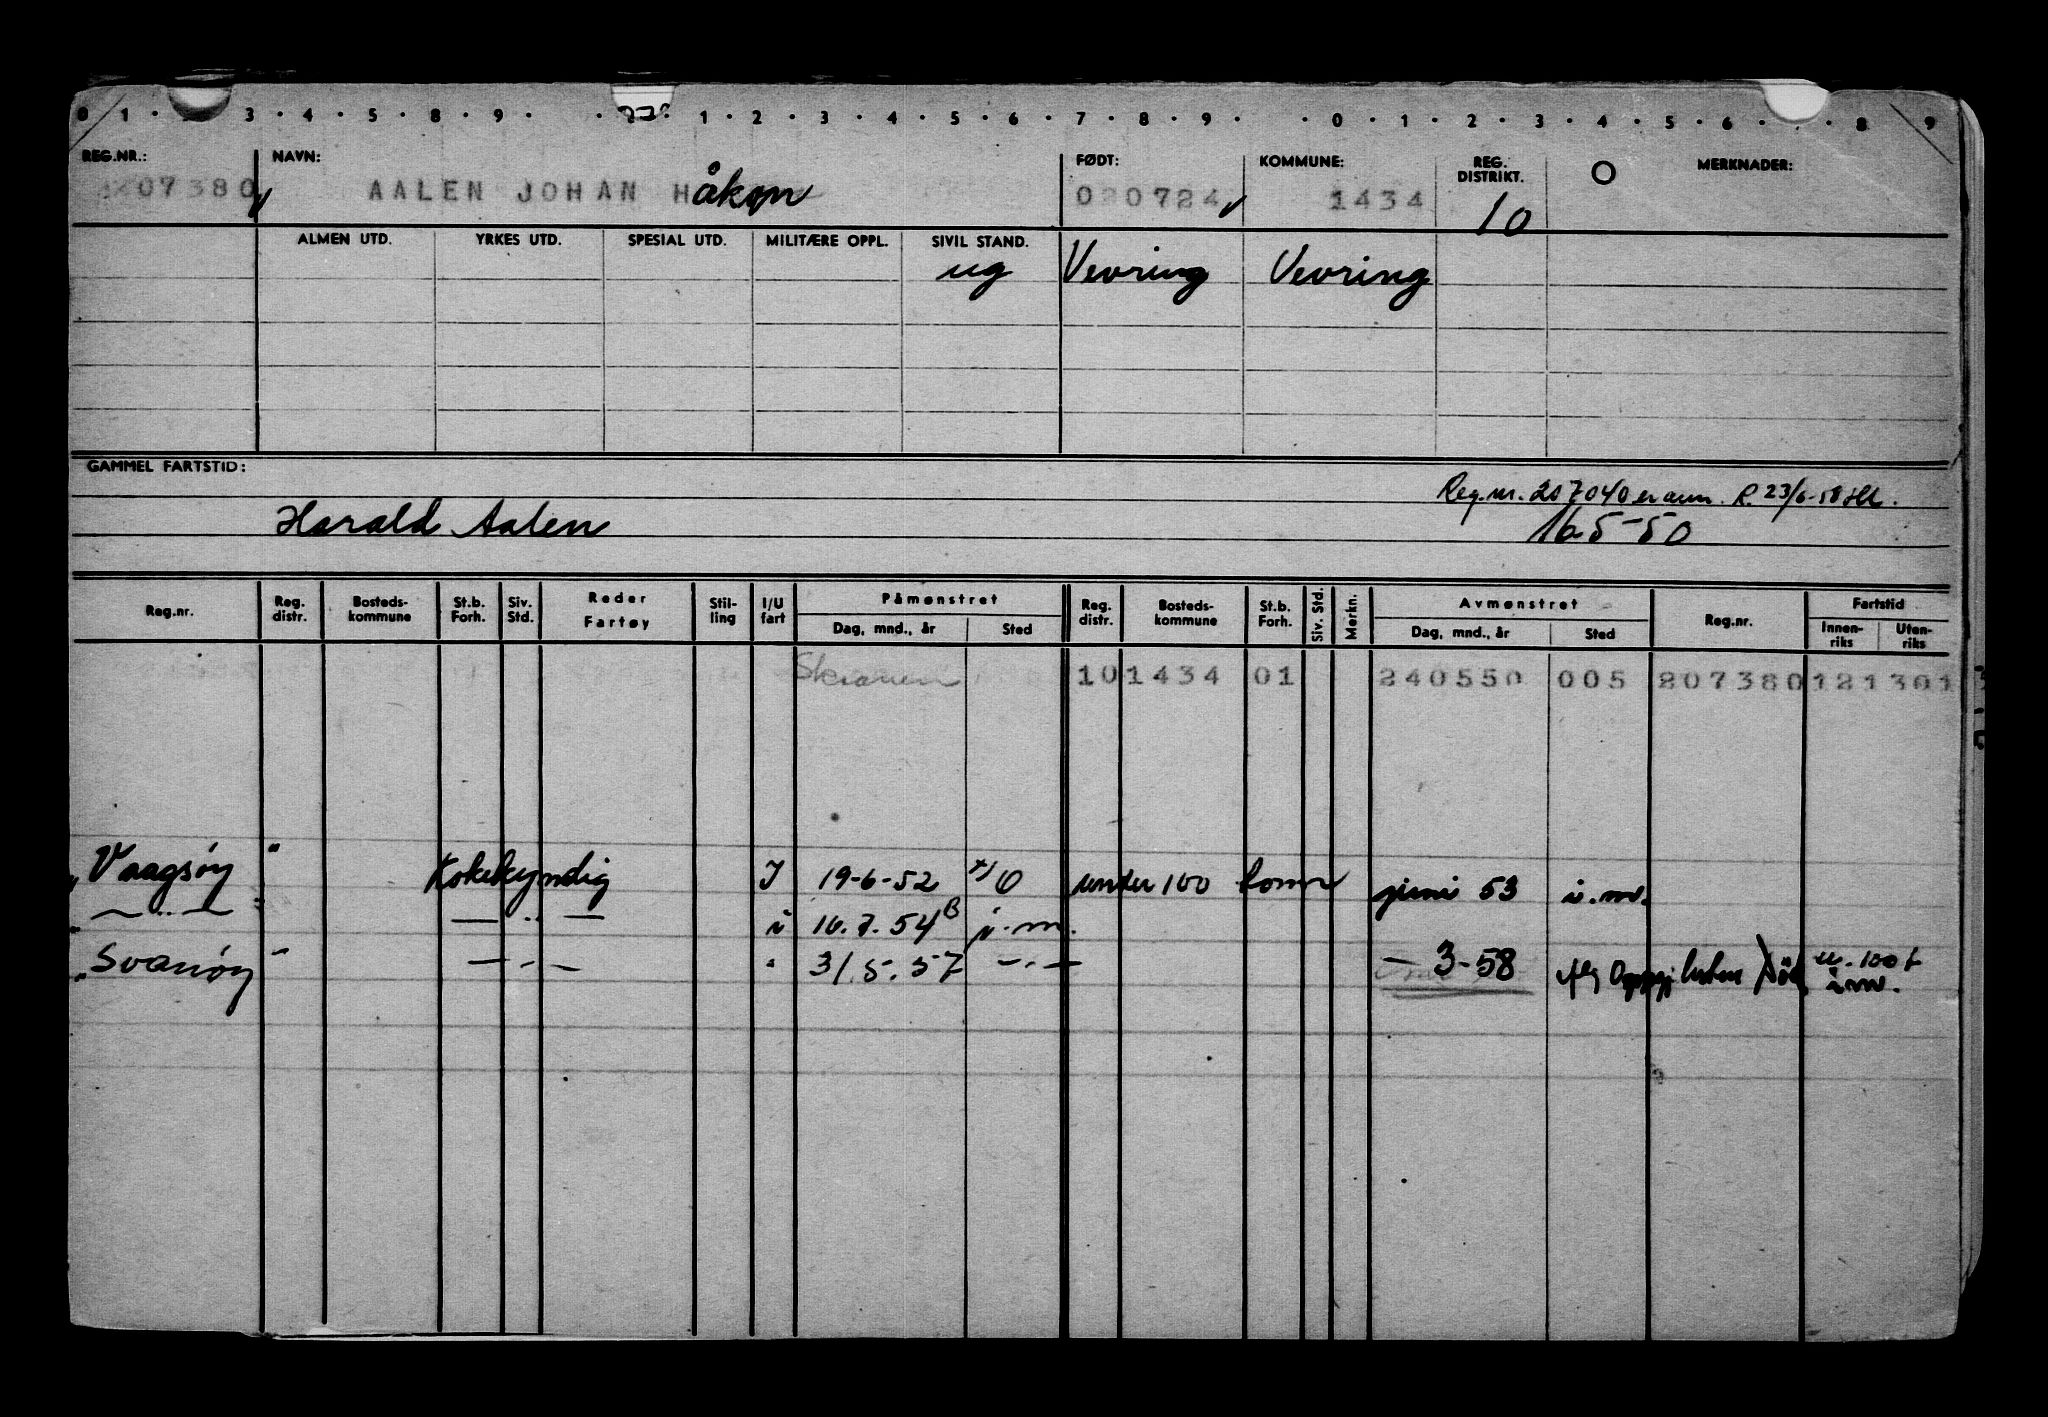 0 1 · · 3 · 4 · 5 · 8 · 9 · · · 1 · 2 · 3 · 4 · 5 · 6 · 7 · 8 · 9 · · 0 · 1 · 2 · 3 · 4 · 5 · 6 · · 8 9
REG.NR.: NAVN: FØDT: KOMMUNE: REG. DISTRIKT. MERKNADER:
207380 AALEN JOHAN Håkon 020724 1434 10
ALMEN UTD. YRKES UTD. SPESIAL UTD. MILITÆRE OPPL. SIVIL STAND.
ug Vevring Vevring
GAMMEL FARTSTID:
Reg.nr. 207040 er ann. R. 23/6-58
Harald Aalen 16-5-50
Reg.nr. Reg. distr. Bosteds-kommune St.b. Forh. Siv. Std. Reder Fartøy Stil-ling I/U fart Påmønstret Dag, mnd., år Sted Reg. distr. Bosteds-kommune St.b. Forh. Siv. Std. Merkn. Avmønstret Dag, mnd., år Sted Reg.nr. Fartstid Innen-riks Uten-riks
10 1434 01 240550 005 207380 121301
" Vaagsöy " Kokekyndig I 19-6-52 under 100 tonn juni 53 i.m.
" — " — — " — i 16.7.54 i.m.
" Svanöy " — " — " 31.5.57 — " — — 3-58 u. 100 t
i.m.